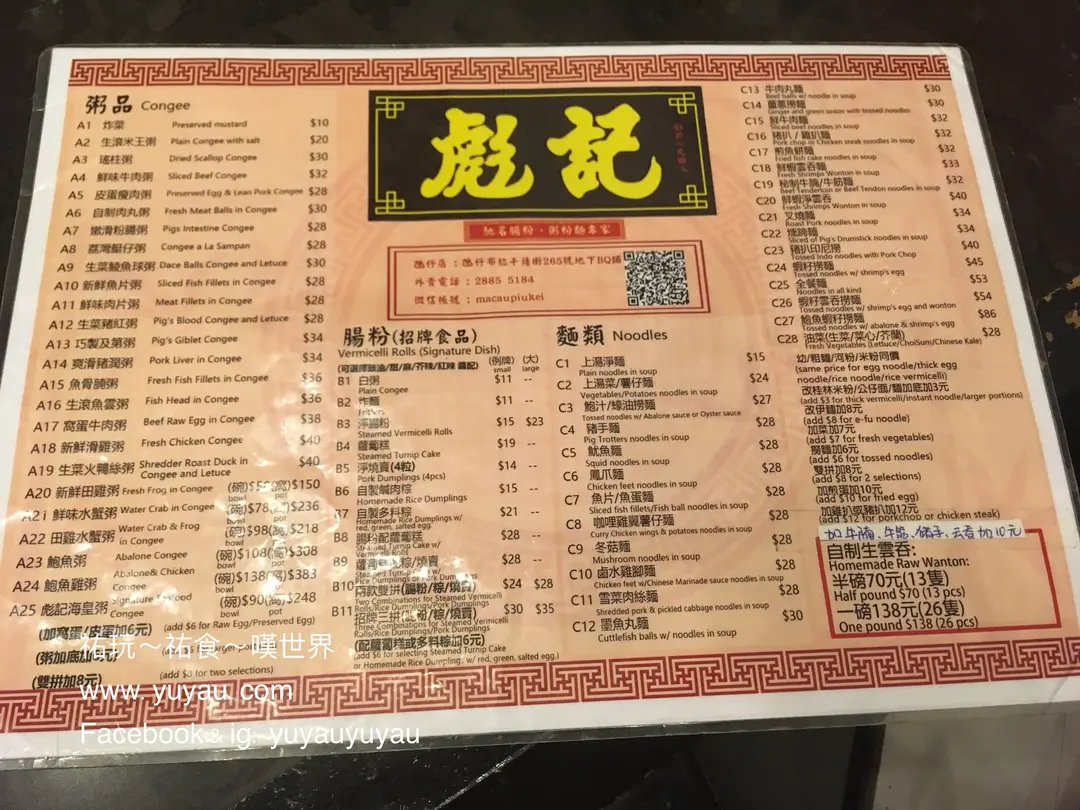 粥品 Congee
A1 炸菜 Preserved mustard $10
A2 生滾米王粥 Plain Congee with salt $20
A3 瑤柱粥 Dried Scallop Congee $30
A4 鮮味牛肉粥 Sliced Beef Congee $32
A5 皮蛋瘦肉粥 Preserved Egg & Lean Pork Congee $28
A6 自制肉丸粥 Fresh Meat Balls in Congee $30
A7 嫩滑粉腸粥 Pigs Intestine Congee $28
A8 荔灣艇仔粥 Congee a La Sampan $28
A9 生菜鯪魚球粥 Dace Balls Congee and Letuce $30
A10 新鮮魚片粥 Sliced Fish Fillets in Congee $28
A11 鮮味肉片粥 Meat Fillets in Congee $28
A12 生菜豬紅粥 Pig's Blood Congee and Letuce $28
A13 巧製及第粥 Pig's Giblet Congee $34
A14 爽滑豬潤粥 Pork Liver in Congee $34
A15 魚骨腩粥 Fresh Fish Fillets in Congee $36
A16 生滾魚雲粥 Fish Head in Congee $36
A17 窩蛋牛肉粥 Beef Raw Egg in Congee $38
A18 新鮮滑雞粥 Fresh Chicken Congee $40
A19 生菜火鴨絲粥 Shredder Roast Duck in Congee and Letuce $40
A20 新鮮田雞粥 Fresh Frog in Congee (碗)$58 bowl (窩)$150 pot
A21 鮮味水蟹粥 Water Crab in Congee (碗)$78 bowl (窩)$236 pot
A22 田雞水蟹粥 Water Crab & Frog in Congee (碗)$98 bowl (窩)$218 pot
A23 鮑魚粥 Abalone Congee (碗)$108 bowl (窩)$308 pot
A24 鮑魚雞粥 Abalone& Chicken Congee (碗)$138 bowl (窩)$383 pot
A25 彪記海皇粥 Signature Seafood Congee (碗)$90 bowl (窩)$248 pot
(加窩蛋/皮蛋加6元) (add $6 for Raw Egg/Preserved Egg)
(粥加底加
(雙拼加8元) (add $3 for two selections)
彪記
馳名腸粉·粥粉麵專家
氹仔店：氹仔布拉干薩街265號地下BQ鋪
外賣電話：2885 5184
微信帳號：macaupiukei
腸粉(招牌食品)
Vermicelli Rolls (Signature Dish)
(例牌) small (大) large
B1 白粥 $11 --
Plain Congee
B2 炸麵 $11 --
Fritters
B3 淨腸粉 $15 $23
Steamed Vermicelli Rolls
B4 蘿蔔糕 $19 --
Steamed Turnip Cake
B5 淨燒賣(4粒) $14 --
Pork Dumplings (4pcs)
B6 自製鹹肉粽 $15 --
Homemade Rice Dumplings
B7 自製多料粽 $21 --
Homemade Rice Dumplings w/ red, green, salted egg
B8 腸粉配蘿蔔糕 $28 --
Steamed Turnip Cake w/ Vermicelli Rolls
B9 $28 --
B10 兩款雙拼(腸粉/粽/燒賣) $24 $28
Two Combinations for Steamed Vermicelli Rolls/Rice Dumplings/Pork Dumplings
B11 招牌三拼 $30 $35
Three Combinations for Steamed Vermicelli Rolls/Rice Dumplings/Pork Dumplings
(配蘿蔔糕或多料粽加6元)
(add $6 for selecting Steamed Turnip Cake
or Homemade Rice Dumpling w/ red, green, salted egg.)
麵類 Noodles
C1 上湯淨麵 $15
Plain noodles in soup
C2 上湯菜/薯仔麵 $24
Vegetables/Potatoes noodles in soup
C3 鮑汁/蠔油撈麵 $27
Tossed noodles w/ Abalone sauce or Oyster sauce
C4 豬手麵 $28
Pig Trotters noodles in soup
C5 魷魚麵 $28
Squid noodles in soup
C6 鳳爪麵 $28
Chicken feet noodles in soup
C7 魚片/魚蛋麵 $28
Sliced fish fillets/Fish ball noodles in soup
C8 咖哩雞翼薯仔麵 $28
Curry Chicken wings & potatoes noodles in soup
C9 冬菇麵 $28
Mushroom noodles in soup
C10 鹵水雞腳麵 $28
Chicken feet w/Chinese Marinade sauce noodles in soup
C11 雪菜肉絲麵 $28
Shredded pork & pickled cabbage noodles in soup
C12 墨魚丸麵 $30
Cuttlefish balls w/ noodles in soup
C13 牛肉丸麵 $30
Beef balls w/ noodle in soup
C14 薑蔥撈麵 $30
Ginger and green onion with tossed noodles
C15 鮮牛肉麵 $32
Sliced beef noodles in soup
C16 豬扒/雞扒麵 $32
Pork chop or Chicken steak noodles in soup
C17 煎魚餅麵 $32
Fried fish cake noodles in soup
C18 鮮蝦雲吞麵 $33
Fresh Shrimps Wonton in soup
C19 秘制牛腩/牛筋麵 $32
Beef Tenderloin or Beef Tendon noodles in soup
C20 鮮蝦淨雲吞 $40
Fresh Shrimps Wonton in soup
C21 叉燒麵 $34
Roast Pork noodles in soup
C22 燻蹄麵 $34
Sliced of Pig's Drumstick noodles in soup
C23 豬扒印尼撈 $40
Tossed Indo noodles with Pork Chop
C24 蝦籽撈麵 $45
Tossed noodles w/ shrimp's egg
C25 全餐麵 $34
Noodles in all kind
C26 蝦籽雲吞撈麵 $54
Tossed noodles w/ shrimp's egg and wonton
C27 鮑魚蝦籽撈麵 $86
Tossed noodles w/ abalone & shrimp's egg
C28 油菜(生菜/菜心/芥蘭) $28
Fresh Vegetables (Lettuce/ChoiSum/Chinese Kale)
幼/粗麵/河粉/米粉同價
(same price for egg noodle/thick egg
noodle/rice noodle/rice vermicelli)
改桂林米粉/公仔面/麵加底加3元
(add $3 for thick vermicelli/instant noodle/larger portions)
改伊麵加8元
(add $8 for e-fu noodle)
加菜加7元
(add $7 for fresh vegetables)
撈麵加6元
(add $6 for tossed noodles)
雙拼加8元
(add $8 for 2 selections)
加煎蛋加10元
(add $10 for fried egg)
加雞扒或豬扒加12元
(add $12 for porkchop or chicken steak)
加牛腩、牛筋、豬手、云吞加10元
自制生雲吞:
Homemade Raw Wanton:
半磅70元(13隻)
Half pound $70 (13 pcs)
一磅138元(26隻)
One pound $138 (26 pcs)
祐玩～祐食～嘆世界
www. yuyau. com
Facebook & ig: yuyauyuyau